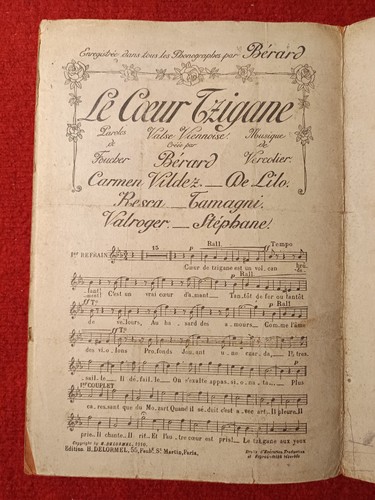 Enregistrée dans tous les Phonographes par Bérard
Le Cœur Tzigane
Paroles Valse Viennoise Musique
de Créée par de
Foucher Bérard Vercolier
Carmen Vildez _ De Lilo
Resca _ Tamagni
Valroger _ Stéphane
1er REFRAIN 15 p Rall. Tempo
Cœur de tzigane est un vol_can brû_
p Rall
_lant C'est un vrai cœur d'a_mant_ Tan_tôt de fer ou tantôt
ff Tº p Rall
de ve_lours, Au ha_sard des a_mours_ Com_me l'âme
ff Tº
des vi_o_lons Pro_fonds Jou_ant u_ne rase_de_ Il tres_
_sail_le Il dé_fail_le_ On s'exalte appas_si_o_na_ta_ Plus
1er COUPLET
ca_res_sant que du Mo_zart Quand il sé_duit c'est a_vec art_Il pleure_Il
prie_ Il chante_ Il rit_ Et l'au_tre cœur est pris!_ Le tzigane aux yeux
Copyright by H. DELORMEL, 1910.
Edition H. DELORMEL, 55, Faubg St Martin, Paris.
Droits d'Exécution, Traduction
et Reproduction réservés